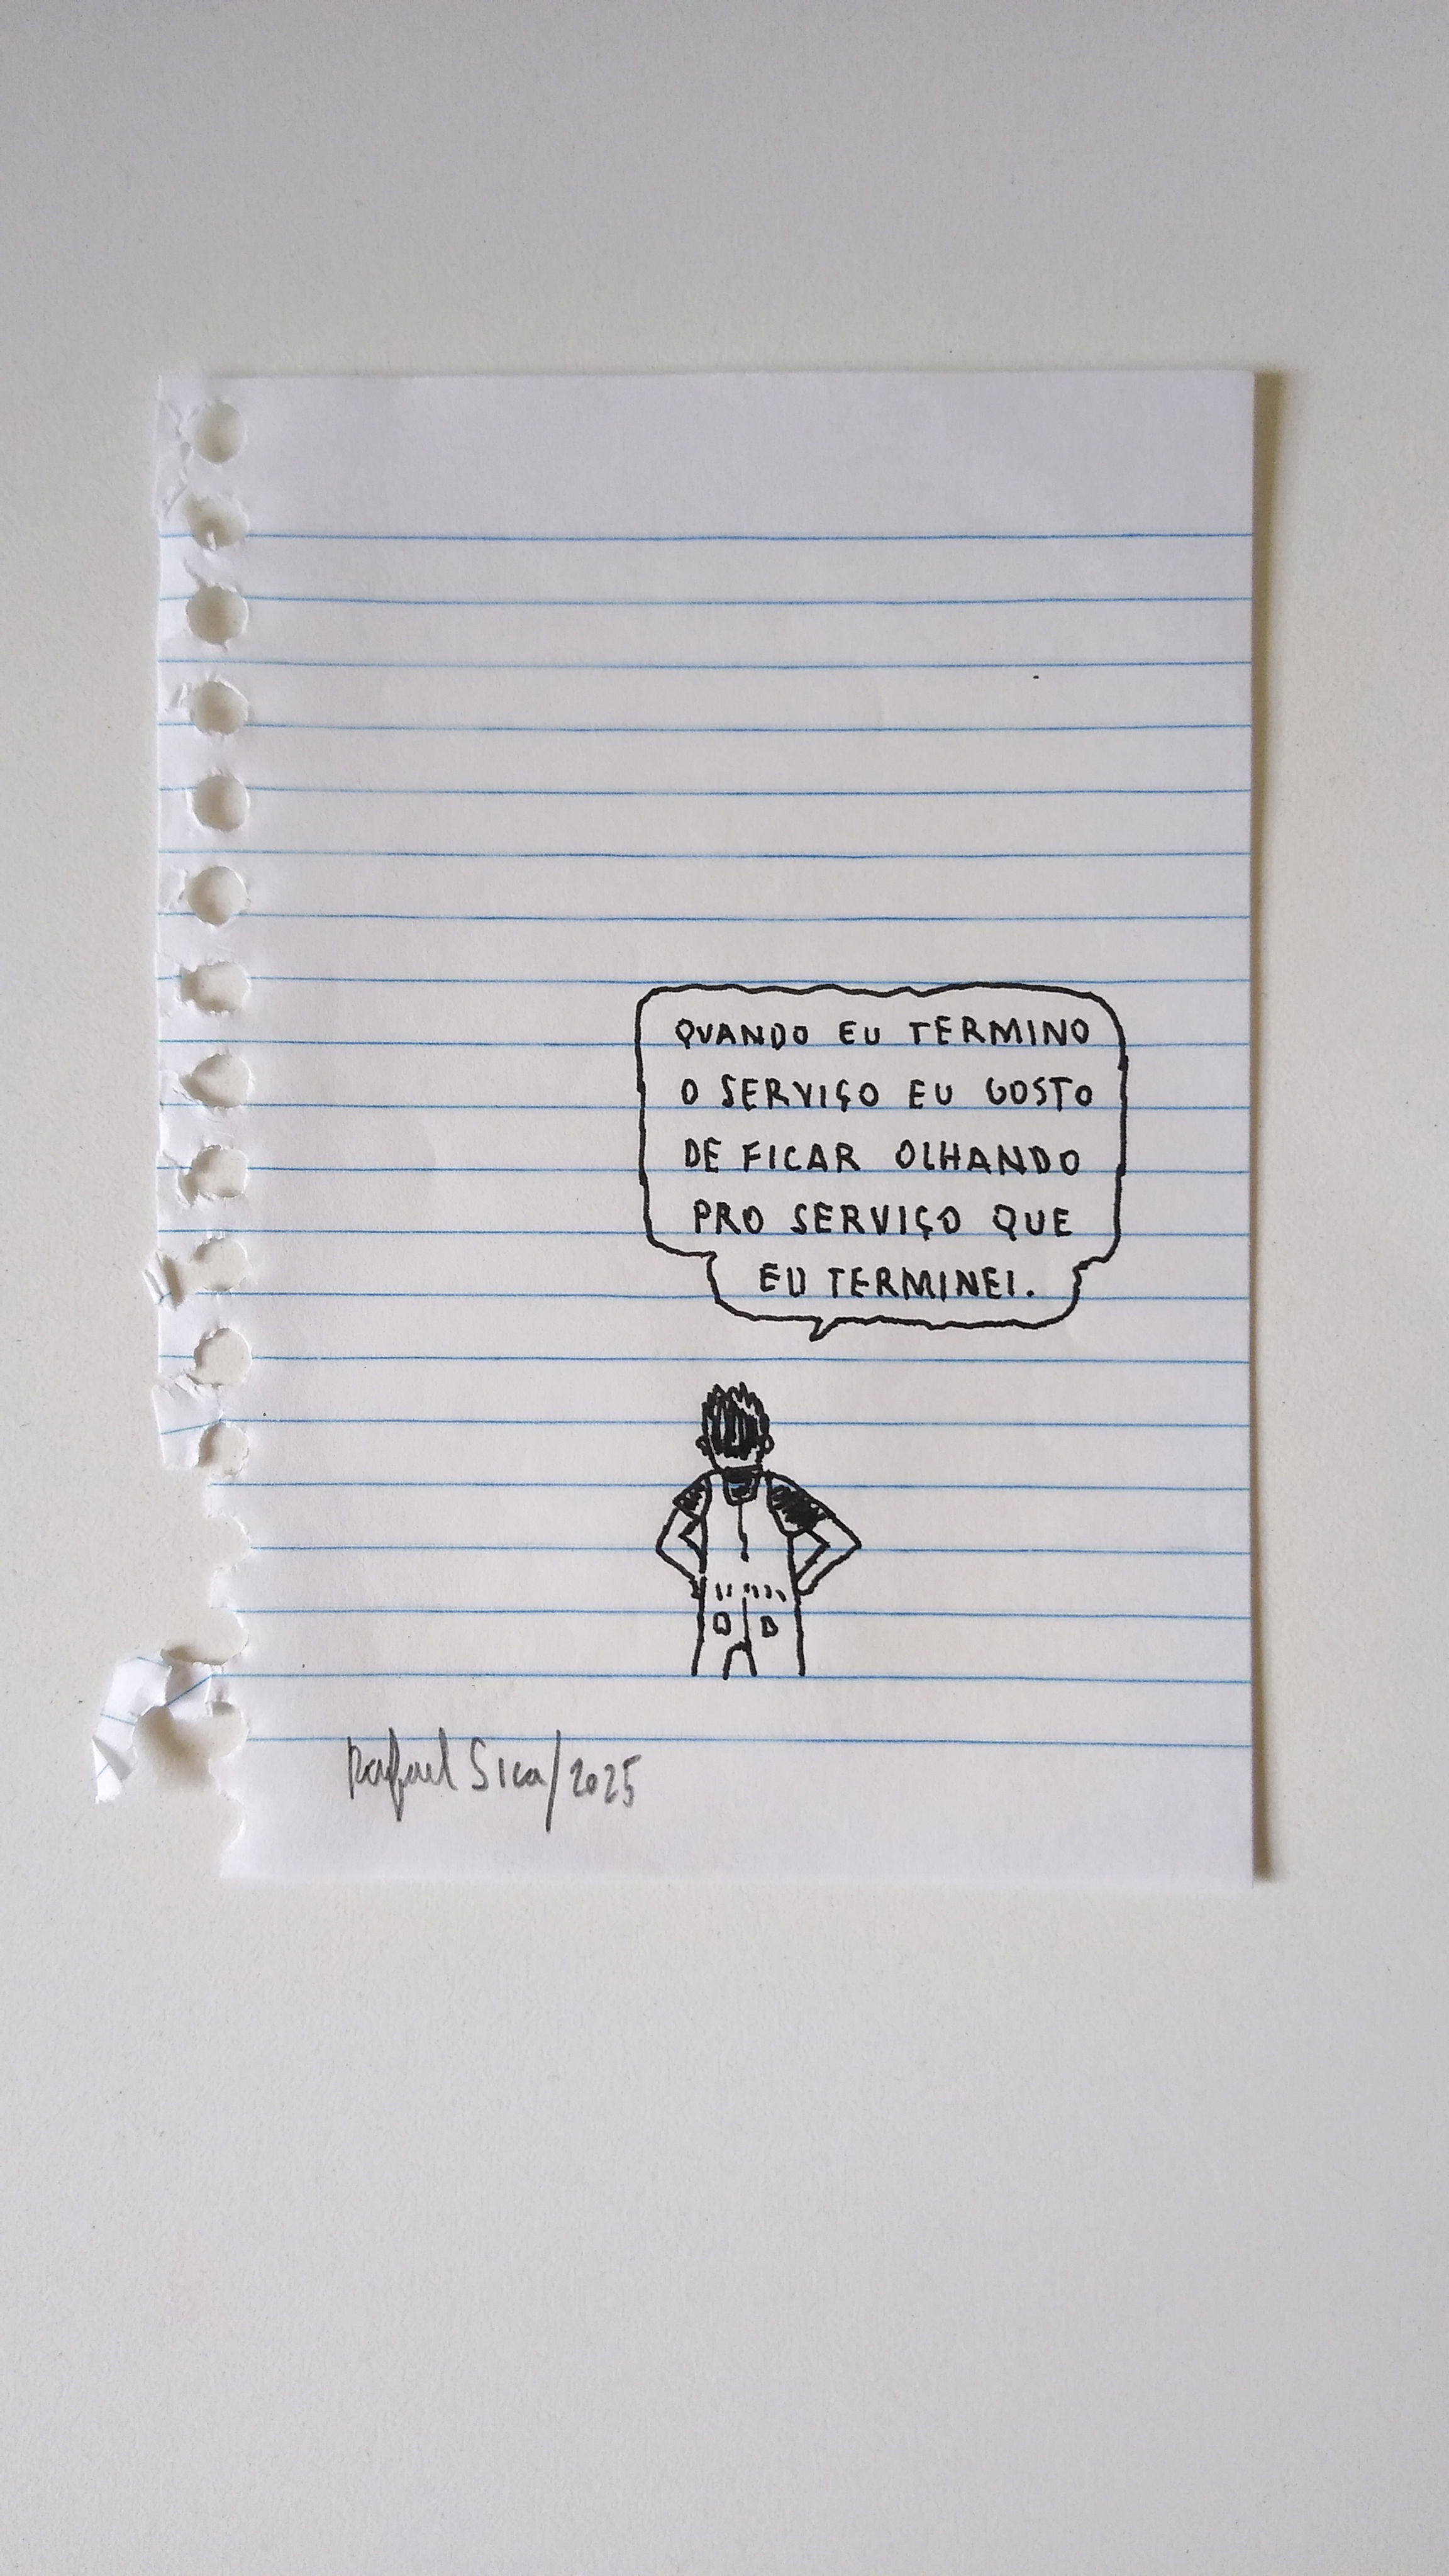 QUANDO EU TERMINO
O SERVIÇO EU GOSTO
DE FICAR OLHANDO
PRO SERVIÇO QUE
EU TERMINEI.
Rafael Sica/2025